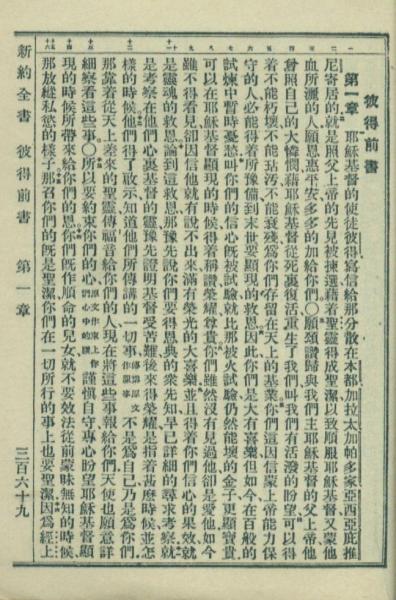 彼得前書
第一章　耶穌基督的使徒彼得寫信給那分散在本都加拉太加帕多家亞西亞庇推
尼寄居的就是照父上帝的先見被揀選藉著聖靈得成聖潔以致順服耶穌基督又蒙他
血所灑的人願恩惠平安多多的加給你們〇願頌讚歸與我們主耶穌基督的父上帝他
曾照自己的大憐憫藉耶穌基督從死裏復活重生了我們叫我們有活潑的盼望可以得
着不能朽壞不能玷污不能衰殘為你們存留在天上的基業你們這因信蒙上帝能力保
守的人必能得着所豫備到末世要顯現的救恩因此你們是大有喜樂但如今在百般的
試煉中暫時憂愁叫你們的信心既被試驗就比那被火試驗仍然能壞的金子更顯寶貴
可以在耶穌基督顯現的時候得着稱讚榮耀尊貴你們雖然沒有見過他卻是愛他如今
雖不得看見卻因信他就有說不出來滿有榮光的大喜樂並且得着你們信心的果效就
是靈魂的救恩論到這救恩那豫先說你們要得恩典的衆先知早已詳細的尋求考察就
是考察在他們心裏基督的靈豫先證明基督受苦難後來得榮耀是指着甚麼時候並怎
樣的時候他們得了啟示知道他們所傳講的一切事傳講原文作服事不是為自己乃是為你們
那靠着從天上差來的聖靈傳福音給你們的人現在將這些事報給你們天使也願意詳
細察看這些事〇所以要約束你們的心原文作束上你們心中的腰謹慎自守專心盼望耶穌基督顯
現的時候所帶來給你們的恩你們既作順命的兒女就不要效法從前蒙昧無知的時候
那放縱私慾的樣子那召你們的既是聖潔你們在一切所行的事上也要聖潔因為經上
新約全書　彼得前書　第一章　三百六十九